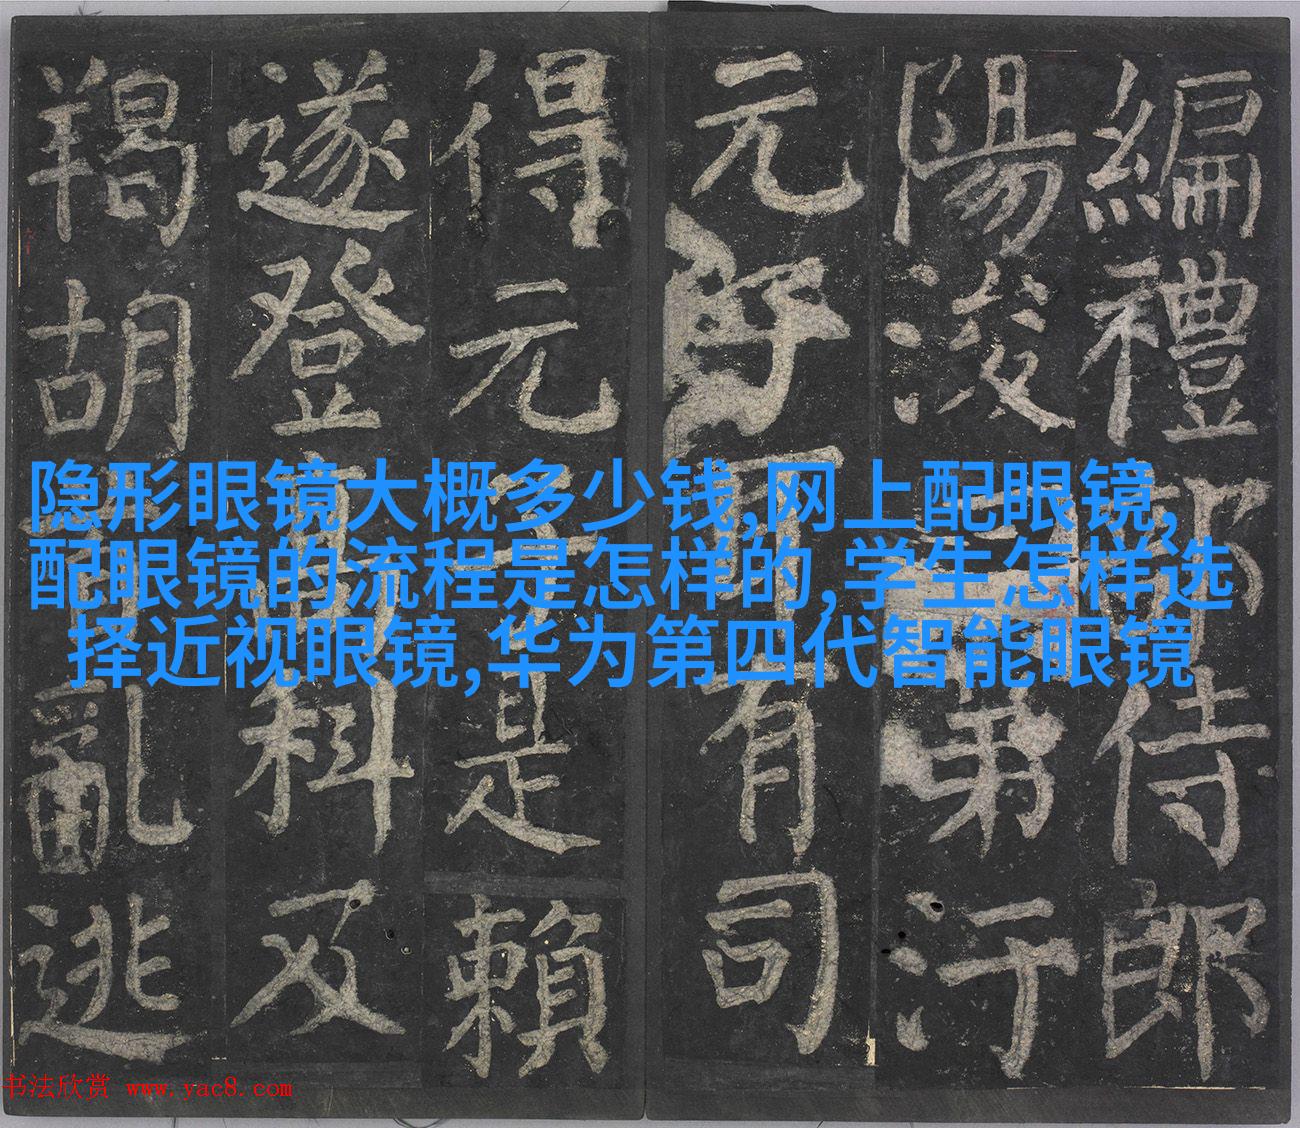 編禮侍郎
陽浚第汙
元子耳有司
得元子是賴
遂登高科及
羯胡首亂逃
隐形眼镜大概多少钱,网上配眼镜,
配眼镜的流程是怎样的,学生怎样选
择近视眼镜,华为第四代智能眼镜
书法欣赏 www.yac8.com